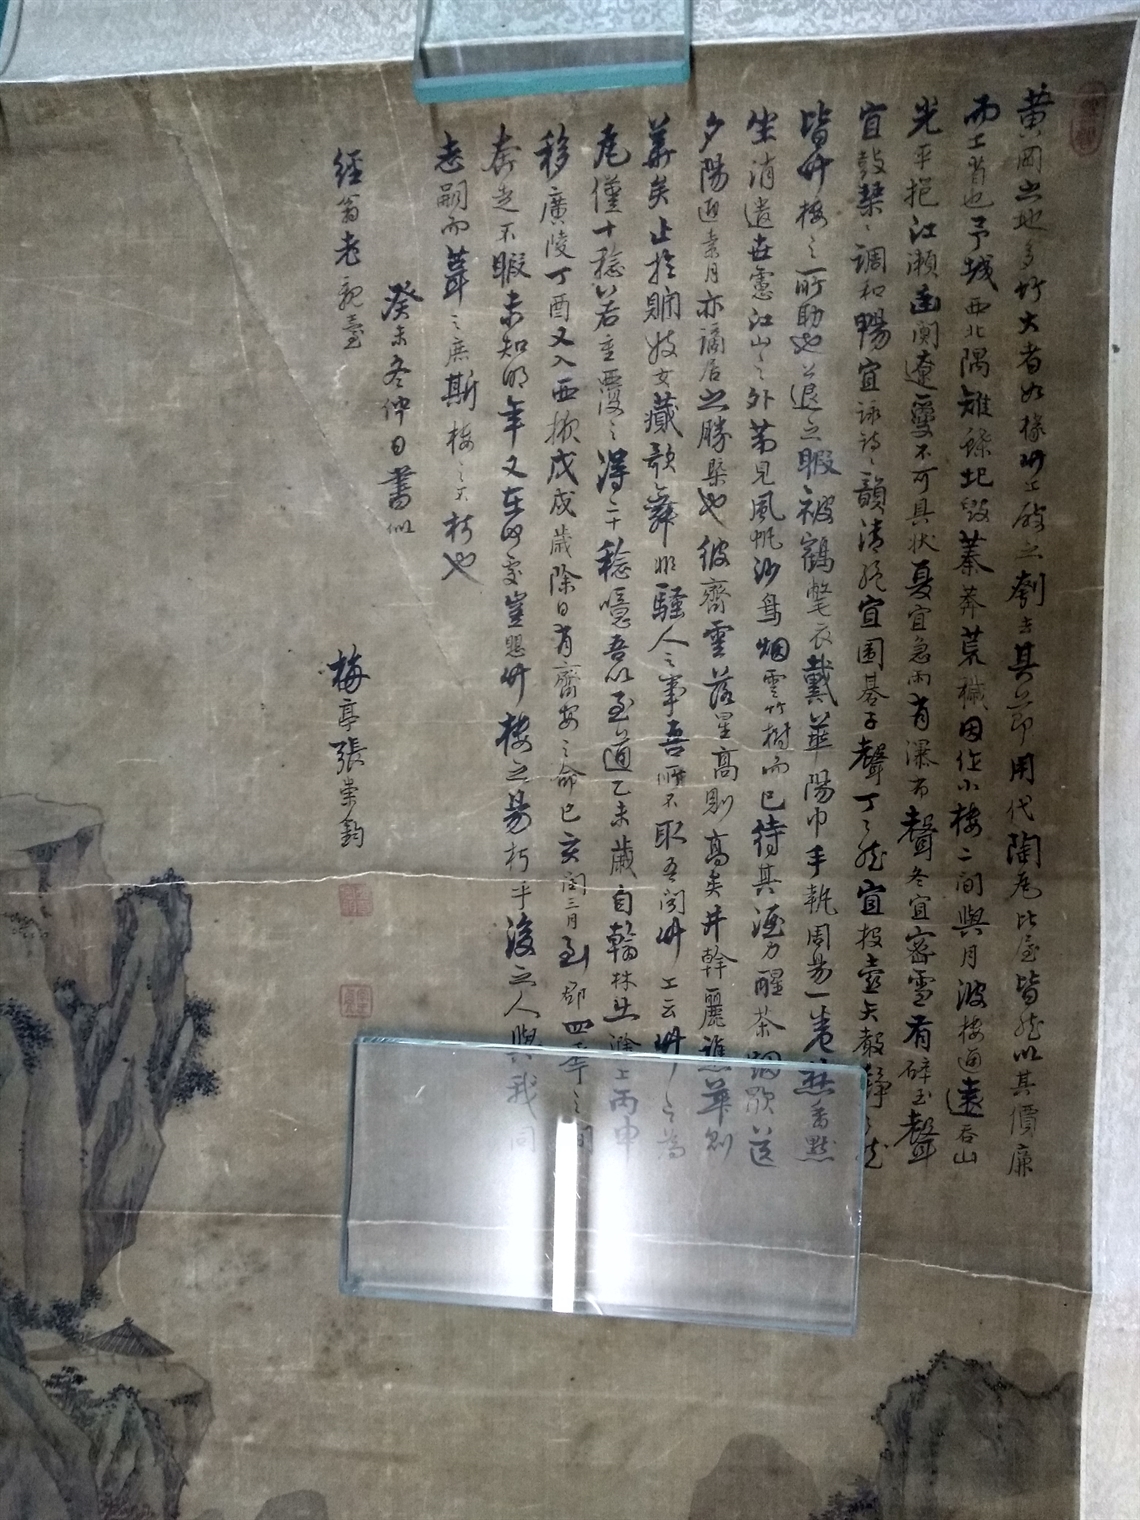 黄岡之地多竹大者如椽竹工破之刳去其節用代陶瓦比屋皆然以其價廉
而工省也予城西北隅雉堞圮毀蓁莽荒穢因作小樓二間與月波樓通遠吞山
光平挹江瀨幽闃遼敻不可具狀夏宜急雨有瀑布聲冬宜密雪有碎玉聲
宜鼓琴琴調和暢宜詠詩詩韻清絕宜圍碁子聲丁丁然宜投壺矢聲錚錚然
皆竹樓之所助也公退之暇被鶴氅衣戴華陽巾手執周易一卷焚香默
坐消遣世慮江山之外第見風帆沙鳥烟雲竹樹而已待其酒力醒茶烟歇送
夕陽迎素月亦謫居之勝槩也彼齊雲落星高則高矣井幹麗譙華則
華矣止於貯妓女藏歌舞非騷人之事吾所不取吾聞竹工云竹之為
瓦僅十稔若重覆之得二十稔噫吾以至道乙未歲自翰林出滁上丙申
移廣陵丁酉又入西掖戊戌歲除日有齊安之命己亥閏三月到郡四年之間
奔走不暇未知明年又在何處豈懼竹樓之易朽乎後之人與我同
志嗣而葺之庶斯樓之不朽也
癸未冬仲日書似
經翁老親臺
梅亭張崇鈞